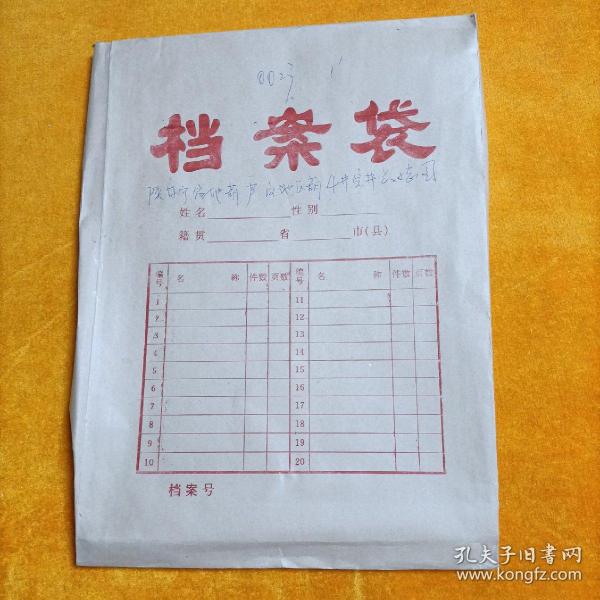 档案袋
陕甘宁盆地葫芦
姓名 性别
籍贯 省 市(县)
编号 名 称 件数 页数 编号 名 称 件数 页数
1 11
2 12
3 13
4 14
5 15
6 16
7 17
8 18
9 19
10 20
档案号
孔夫子旧书网
www.kongfz.com